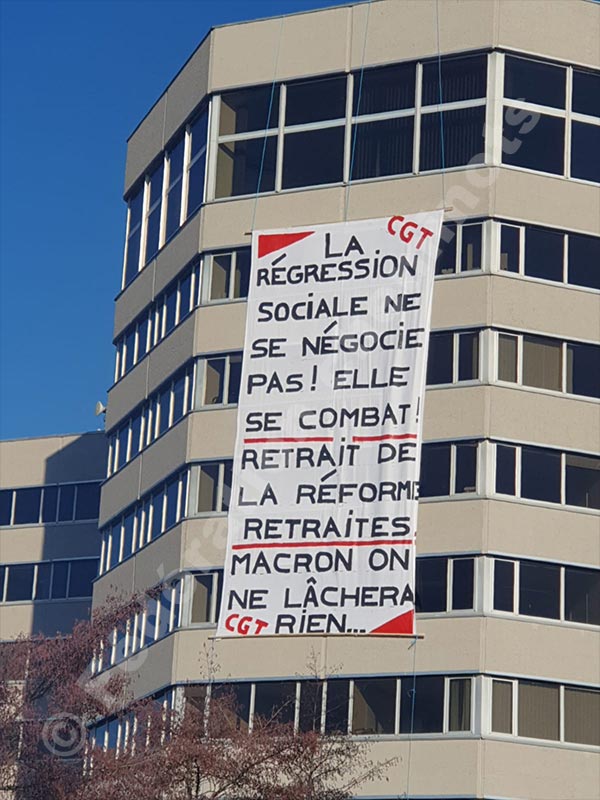 LA CGT
RÉGRESSION
SOCIALE NE
SE NÉGOCIE
PAS! ELLE
SE COMBAT!
RETRAIT DE
LA RÉFORME
RETRAITES.
MACRON ON
NE LÂCHERA
CGT RIEN...